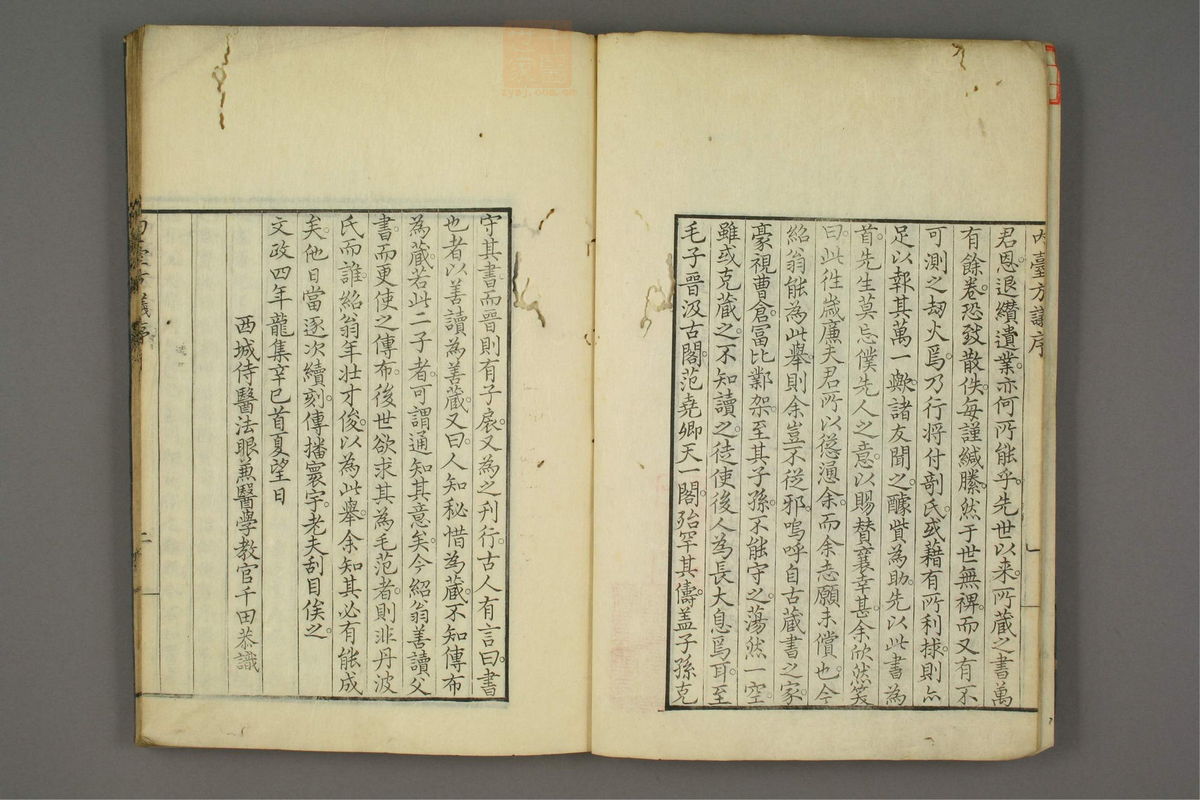 內臺方議序
君恩退纘遺業亦何所能乎先世以来所藏之書萬
有餘卷恐致散佚每謹緘縢然于世無禆而又有不
可測之劫火焉乃行将付剞氏或藉有所利捄則亦
足以報其萬一歟諸友聞之醵貲為助先以此書為
首先生莫忘僕先人之意以賜賛襄幸甚余欣然笑
曰此徃歳廉夫君所以慫慂余而余志願未償也今
紹翁能為此舉則余豈不従邪嗚呼自古藏書之家
豪視曹倉冨比鄴架至其子孫不能守之蕩然一空
雖或克藏之不知讀之徒使後人為長大息焉耳至
毛子晉汲古閣范堯卿天一閣殆罕其儔盖子孫克
守其書而晉則有子扆又為之刊行古人有言曰書
也者以善讀為善藏又曰人知秘惜為藏不知傳布
為藏若此二子者可謂通知其意矣今紹翁善讀父
書而更使之傳布後世欲求其為毛范者則非丹波
氏而誰紹翁年壮才俊以為此舉余知其必有能成
矣他日當逐次續刻傳播寰宇老夫刮目俟之
文政四年龍集辛巳首夏望日
西城侍醫法眼兼醫學教官千田恭識
內臺方議序
二